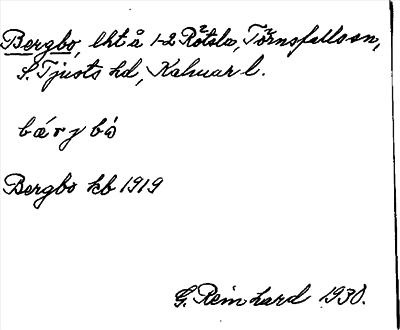 Bergbo, lht å 1-2 Rötsla, Törnsfalls sn,
S. Tjusts hd, Kalmar l.
bárjbò
Bergbo kb 1919
G. Reinhard 1930.